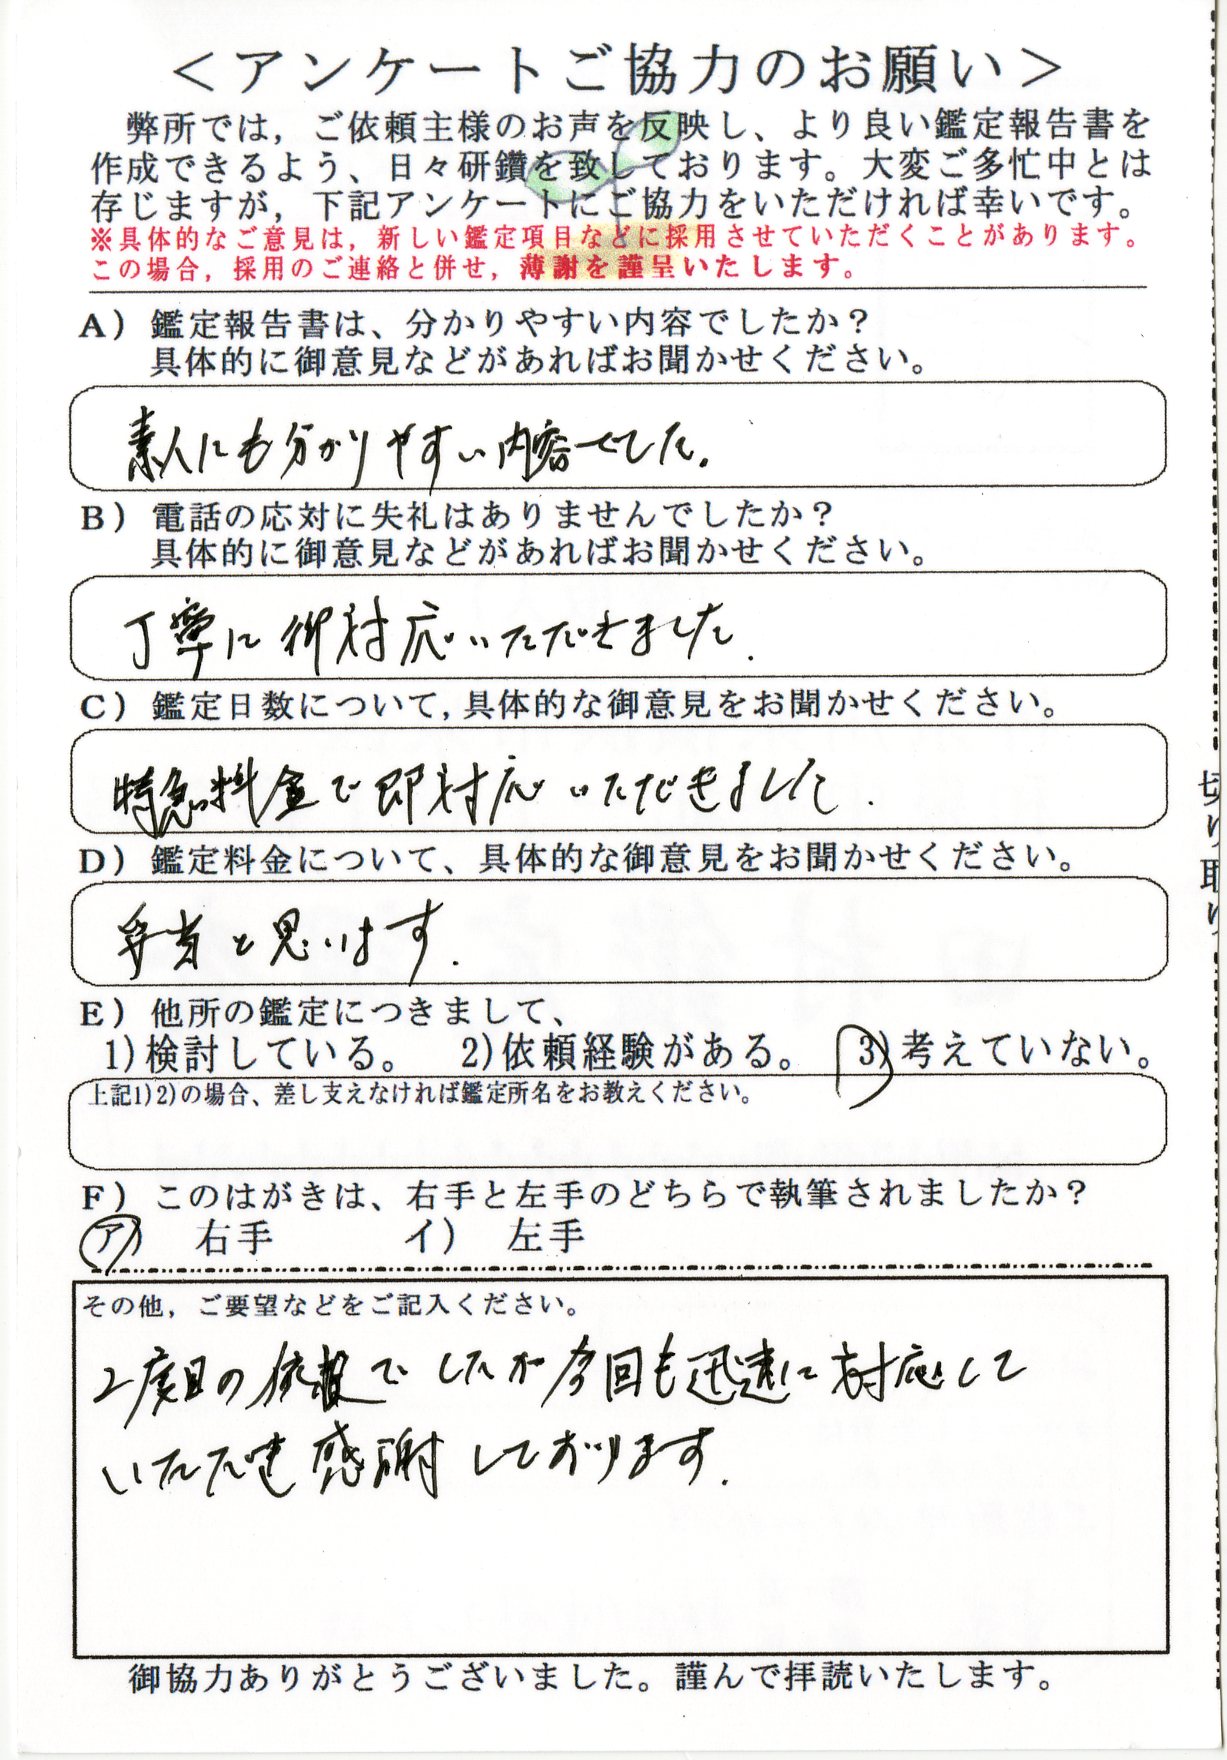 ＜アンケートご協力のお願い＞
弊所では，ご依頼主様のお声を反映し、より良い鑑定報告書を
作成できるよう、日々研鑽を致しております。大変ご多忙中とは
存じますが，下記アンケートにご協力をいただければ幸いです。
※具体的なご意見は，新しい鑑定項目などに採用させていただくことがあります。
この場合，採用のご連絡と併せ，薄謝を謹呈いたします。
A）鑑定報告書は、分かりやすい内容でしたか？
具体的に御意見などがあればお聞かせください。
素人にも分かりやすい内容でした.
B）電話の応対に失礼はありませんでしたか？
具体的に御意見などがあればお聞かせください。
丁寧に御対応いただきました.
C）鑑定日数について，具体的な御意見をお聞かせください。
特急料金で即対応いただきました.
D）鑑定料金について、具体的な御意見をお聞かせください。
と思います.
E）他所の鑑定につきまして、
1)検討している。 2)依頼経験がある。 3)考えていない。
上記1)2)の場合、差し支えなければ鑑定所名をお教えください。
F）このはがきは、右手と左手のどちらで執筆されましたか？
ア） 右手 イ） 左手
その他，ご要望などをご記入ください。
2度目の依頼でしたが今回も迅速に対応して
いただき感謝しております.
御協力ありがとうございました。謹んで拝読いたします。
切り取り